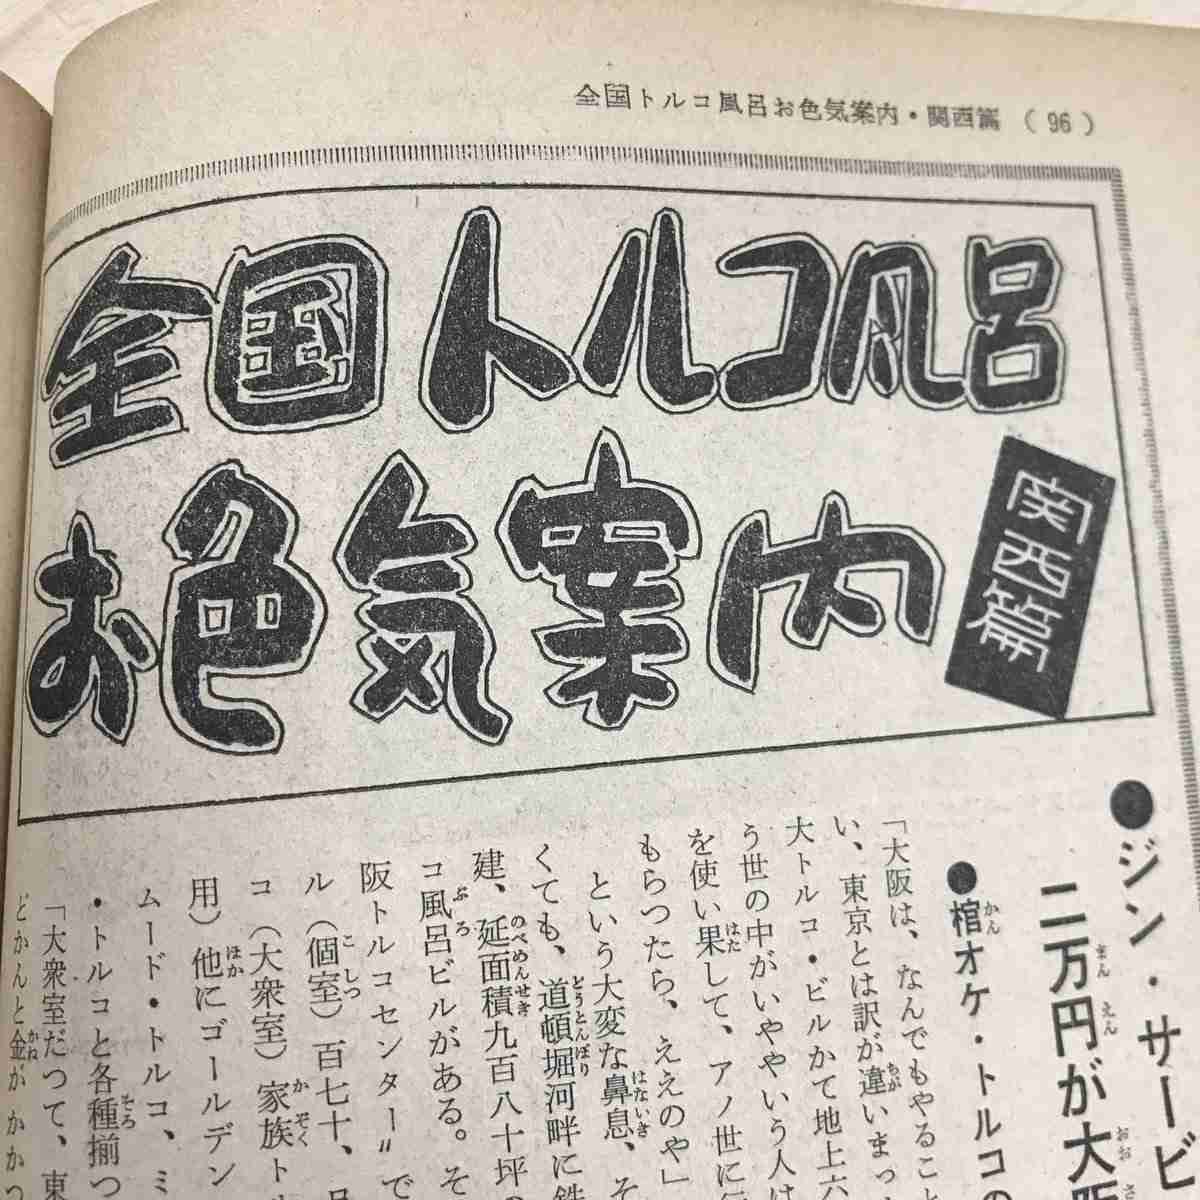 全国トルコ風呂お色気案内・関西篇 (96)
全国トルコ風呂
お色気案内
関西篇
●ジン・サービ
二万円が大阪
●棺オケ・トルコの
「大阪は、なんでもやること
い、東京とは訳が違いまっ
大トルコ・ビルかて地上六
う世の中がいややいう人は
を使い果して、アノ世に
もらつたら、ええのや」
という大変な鼻息、そ
くても、道頓堀河畔に鉄
建、延面積九百八十坪の
コ風呂ビルがある。そ
阪トルコセンター〃で
ル(個室)百七十、
コ(大衆室)家族ト
用)他にゴールデン
ムード・トルコ、ミ
・トルコと各種揃つ
「大衆室だつて、東
どかんと金がかかつ